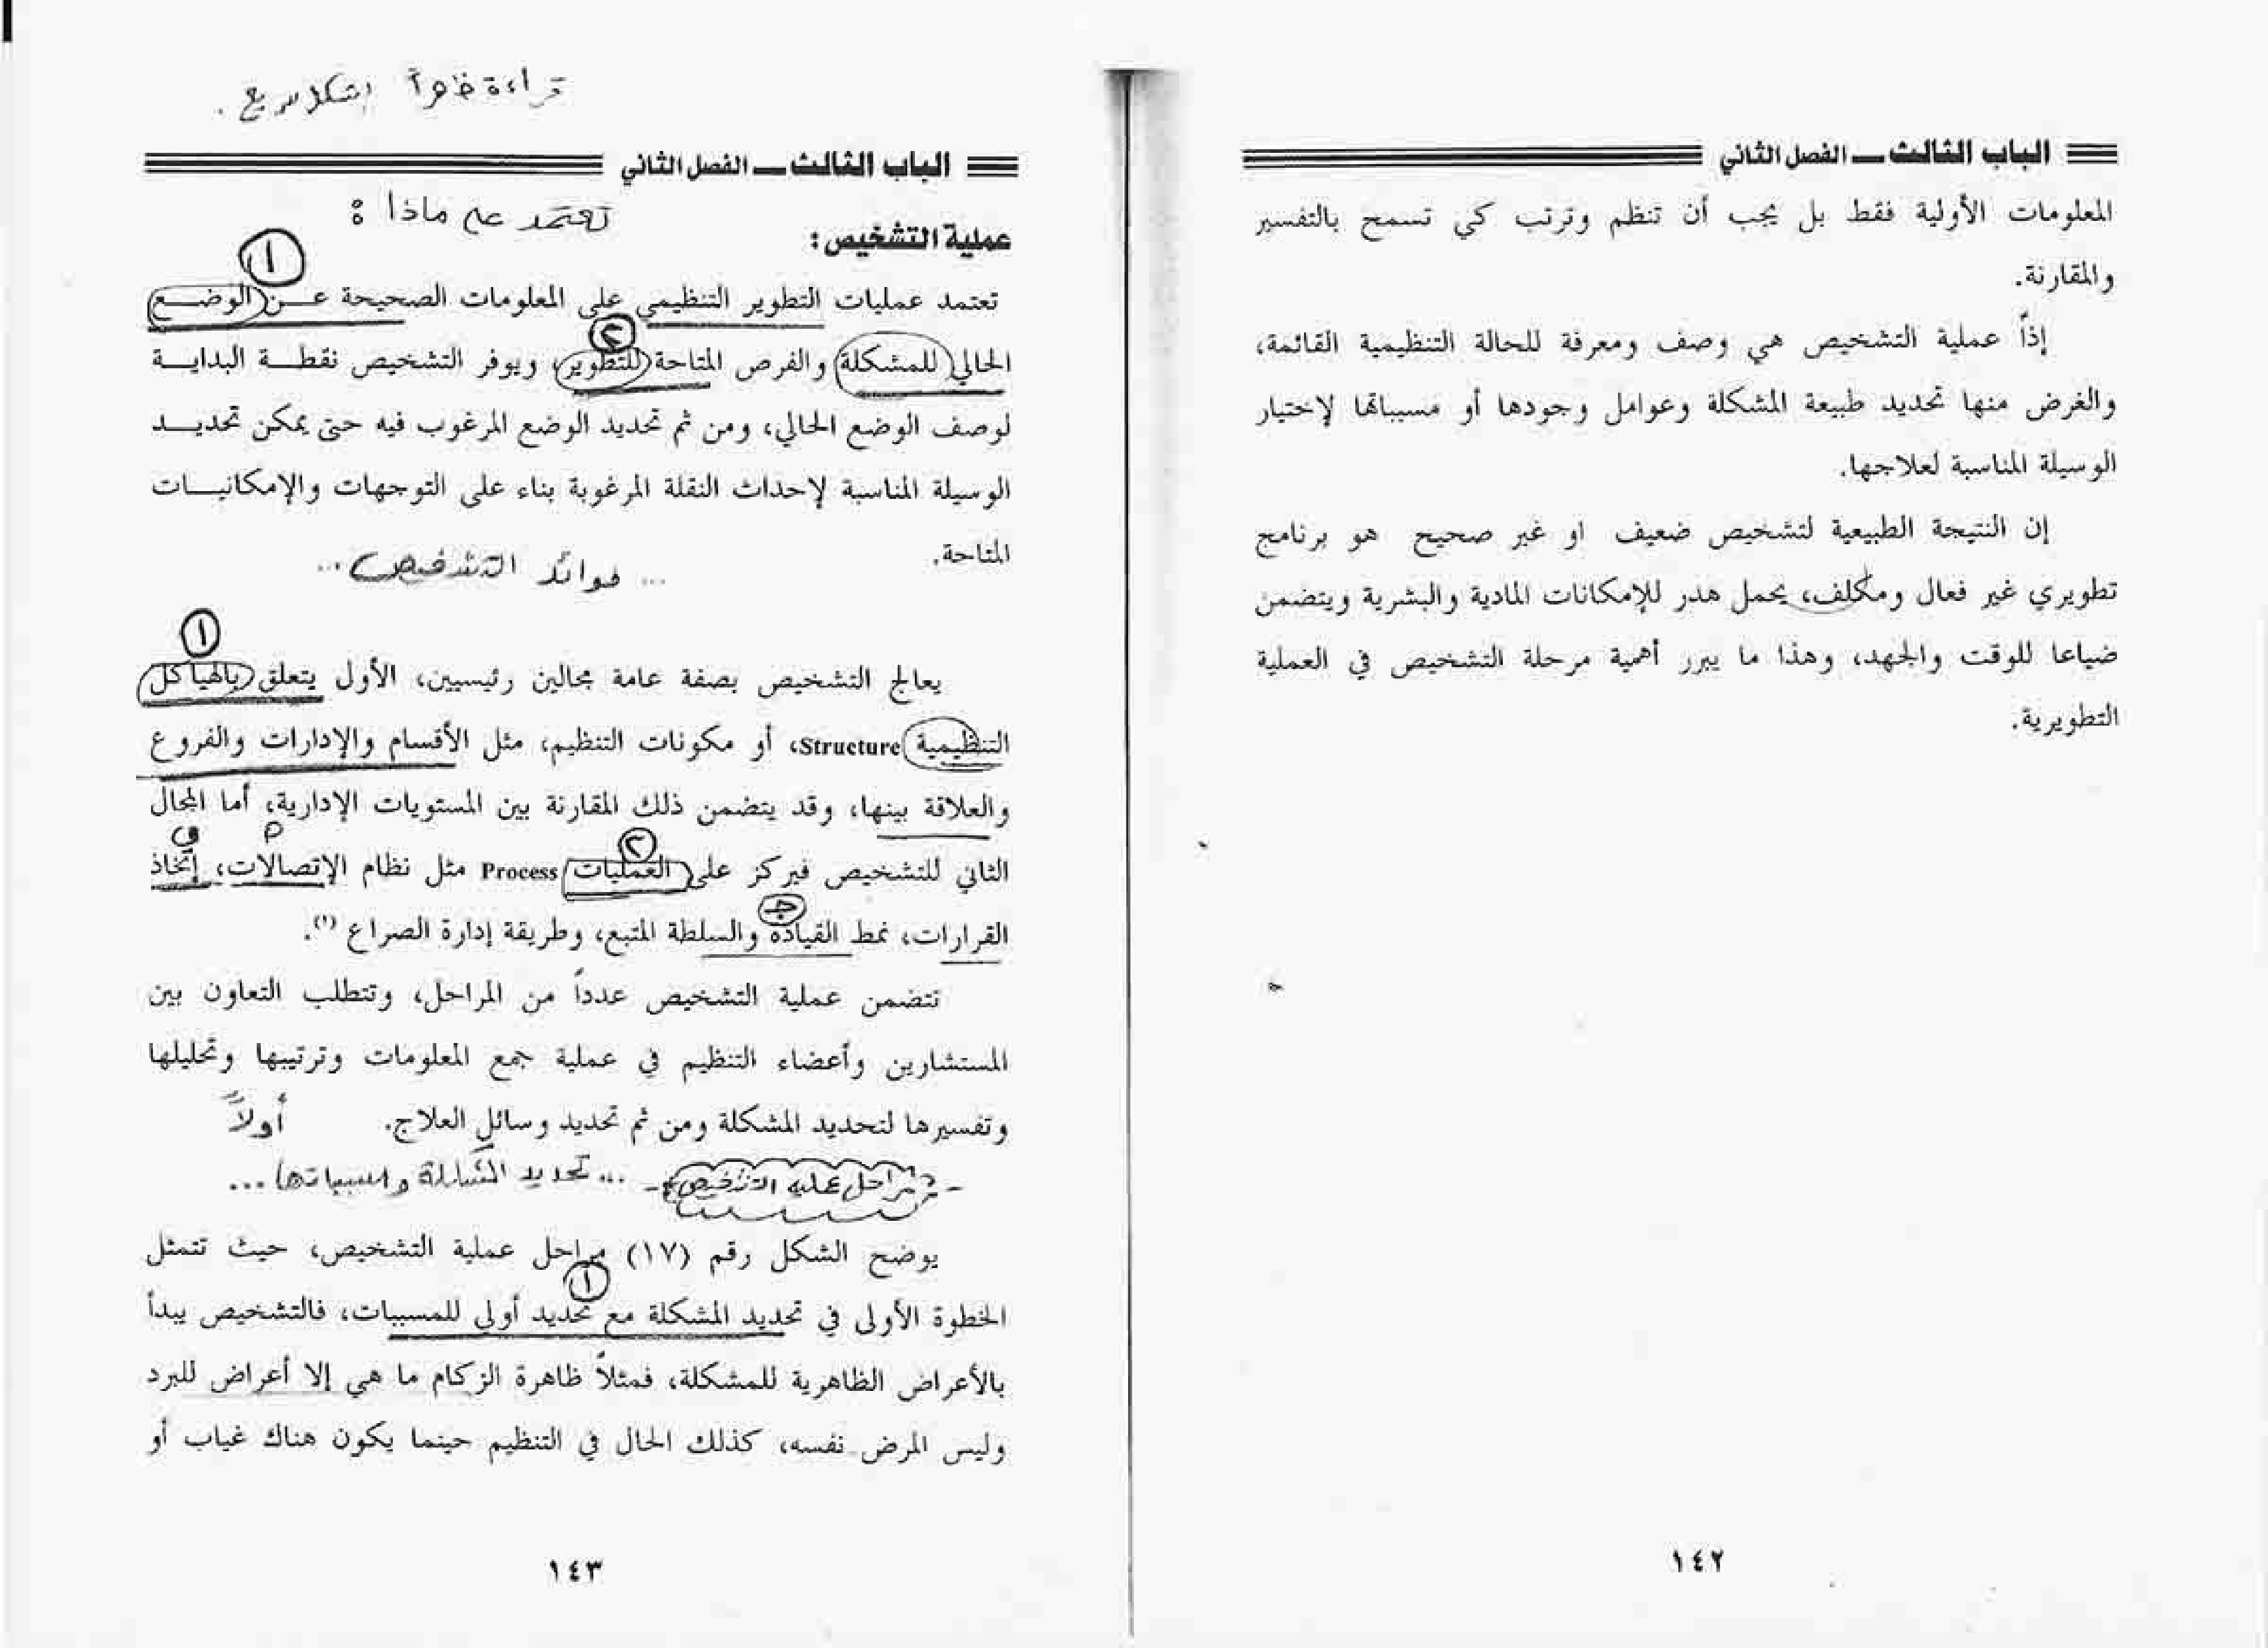 الباب الثالث ــ الفصل الثاني
المعلومات الأولية فقط بل يجب أن تنظم وترتب كي تسمح بالتفسير
والمقارنة.
إذاً عملية التشخيص هي وصف ومعرفة للحالة التنظيمية القائمة،
والغرض منها تحديد طبيعة المشكلة وعوامل وجودها أو مسبباتها لإختيار
الوسيلة المناسبة لعلاجها.
إن النتيجة الطبيعية لتشخيص ضعيف او غير صحيح هو برنامج
تطويري غير فعال ومكلف، يحمل هدر للإمكانات المادية والبشرية ويتضمن
ضياعا للوقت والجهد، وهذا ما يبرر أهمية مرحلة التشخيص في العملية
التطويرية.
١٤٢
قراءة بشكل سريع .
الباب الثالث ــ الفصل الثاني
تعتمد على ماذا :
عملية التشخيص:
١
تعتمد عمليات التطوير التنظيمي على المعلومات الصحيحة عن الوضع
٢
الحالي للمشكلة والفرص المتاحة للتطوير، ويوفر التشخيص نقطة البداية
لوصف الوضع الحالي، ومن ثم تحديد الوضع المرغوب فيه حتى يمكن تحديد
الوسيلة المناسبة لإحداث النقلة المرغوبة بناء على التوجهات والإمكانيات
المتاحة.
... فوائد التشخيص ...
١
يعالج التشخيص بصفة عامة مجالين رئيسيين، الأول يتعلق بالهياكل
التنظيمية Structure، أو مكونات التنظيم، مثل الأقسام والإدارات والفروع
والعلاقة بينها، وقد يتضمن ذلك المقارنة بين المستويات الإدارية، أما المجال
٢
الثاني للتشخيص فيركز على العمليات Process مثل نظام الإتصالات، إتخاذ
جـ
القرارات، نمط القيادة والسلطة المتبع، وطريقة إدارة الصراع (١).
تتضمن عملية التشخيص عدداً من المراحل، وتتطلب التعاون بين
المستشارين وأعضاء التنظيم في عملية جمع المعلومات وترتيبها وتحليلها
وتفسيرها لتحديد المشكلة ومن ثم تحديد وسائل العلاج. أولاً
- مراحل عملية التشخيص - ... تحديد المشكلة ومسبباتها ...
يوضح الشكل رقم (١٧) مراحل عملية التشخيص، حيث تتمثل
١
الخطوة الأولى في تحديد المشكلة مع تحديد أولي للمسببات، فالتشخيص يبدأ
بالأعراض الظاهرية للمشكلة، فمثلاً ظاهرة الزكام ما هي إلا أعراض للبرد
وليس المرض نفسه، كذلك الحال في التنظيم حينما يكون هناك غياب أو
١٤٣